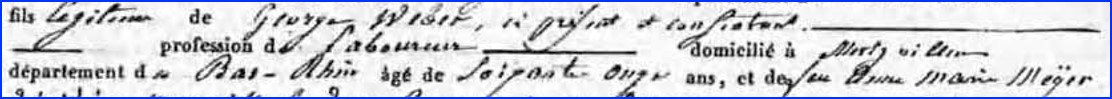 fils légitime de George Weber, ci présent et consentant.
profession de laboureur domicilié à
département du Bas-Rhin âgé de soixante onze ans, et de feu Anne Marie Meÿer